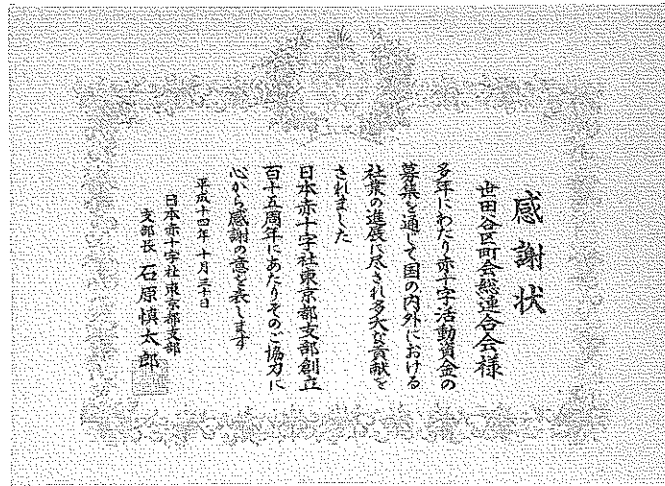 感謝状
世田谷区町会総連合会様
多年にわたり赤十字活動資金の
募集を通じて国の内外における
社業の進展に尽され多大な貢献を
されました
日本赤十字社東京都支部創立
百十五周年にあたりそのご協力に
心から感謝の意を表します
平成十四年十月三十日
日本赤十字社東京都支部
支部長 石原慎太郎